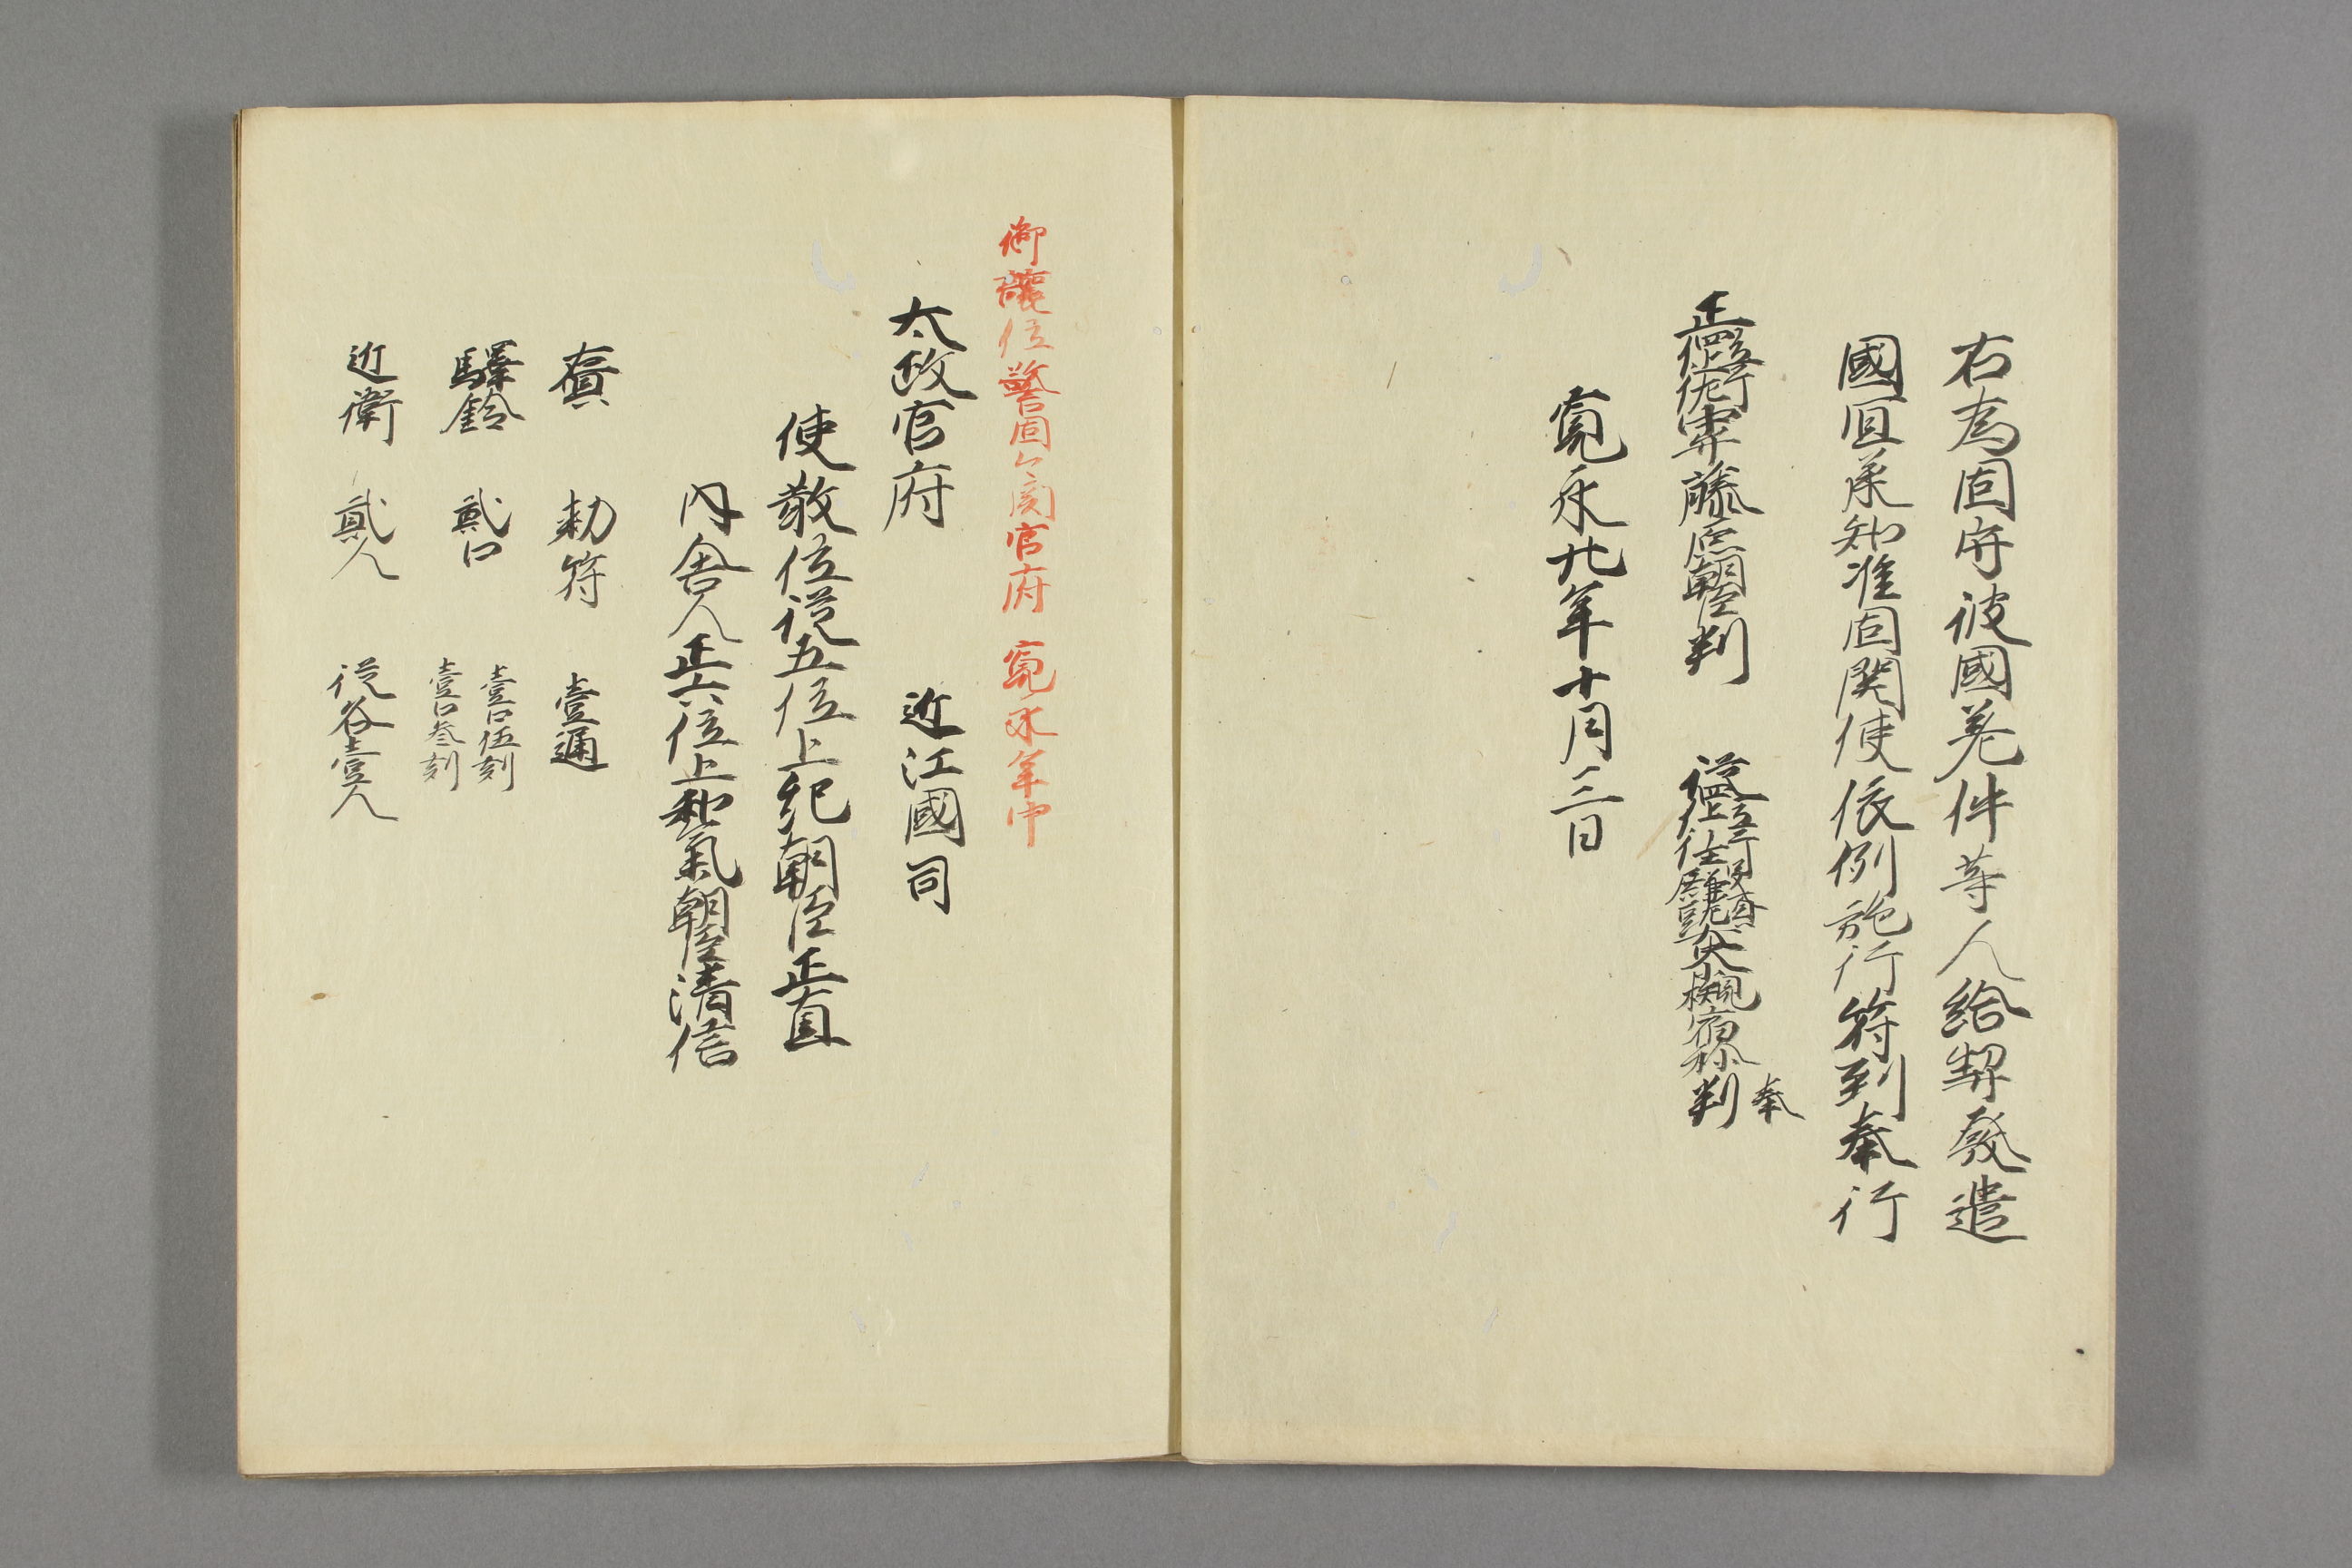 右為固守彼國差件等人給契發遣
國宜承知准固関使依例施行符到奉行
正四位上行左中弁藤原朝臣判 從四位上行主殿頭兼左大史小槻宿祢判奉
寛永廿年十月三日
御讓位警固々関官府 寛永年中
太政官府 近江國司
使散位從五位上紀朝臣正直
内舎人正六位上和氣朝臣清信
賷 勅符 壹通
驛鈴 貳口 壹口伍刻
壹口叁刻
近衛 貳人 從各壹人